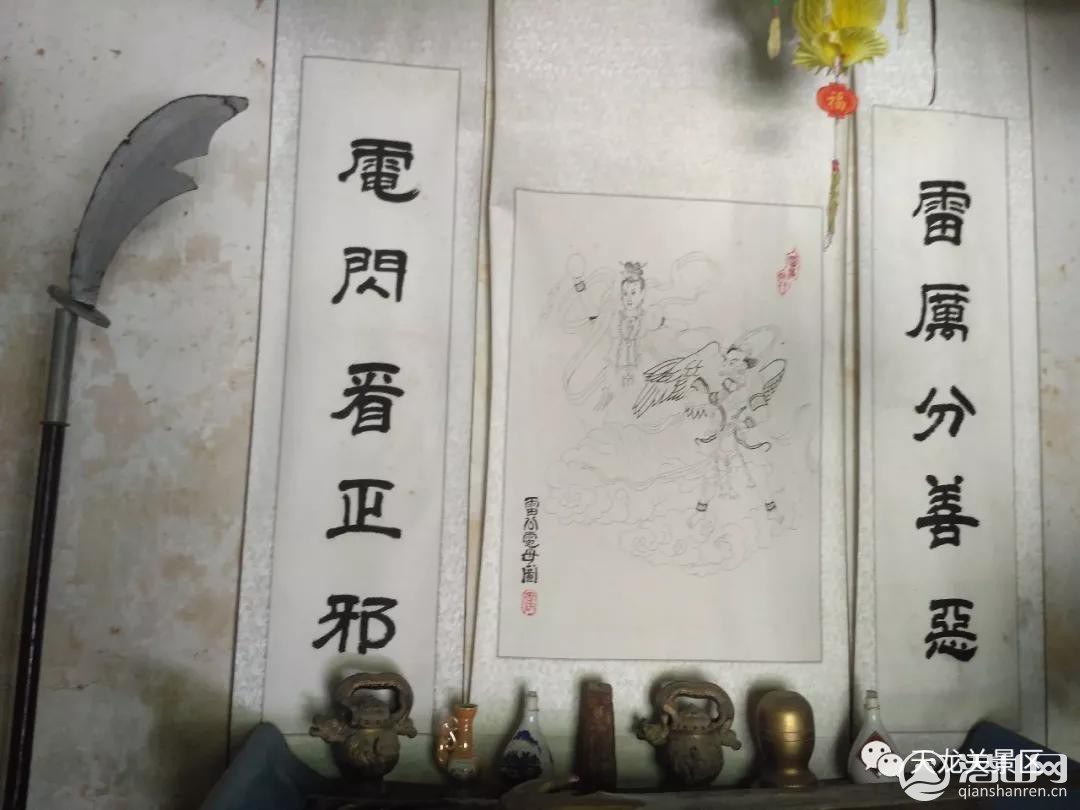 福
雷厲分善惡
雷公電母圖
電閃看正邪
天龙关景区
qianshanren.cn